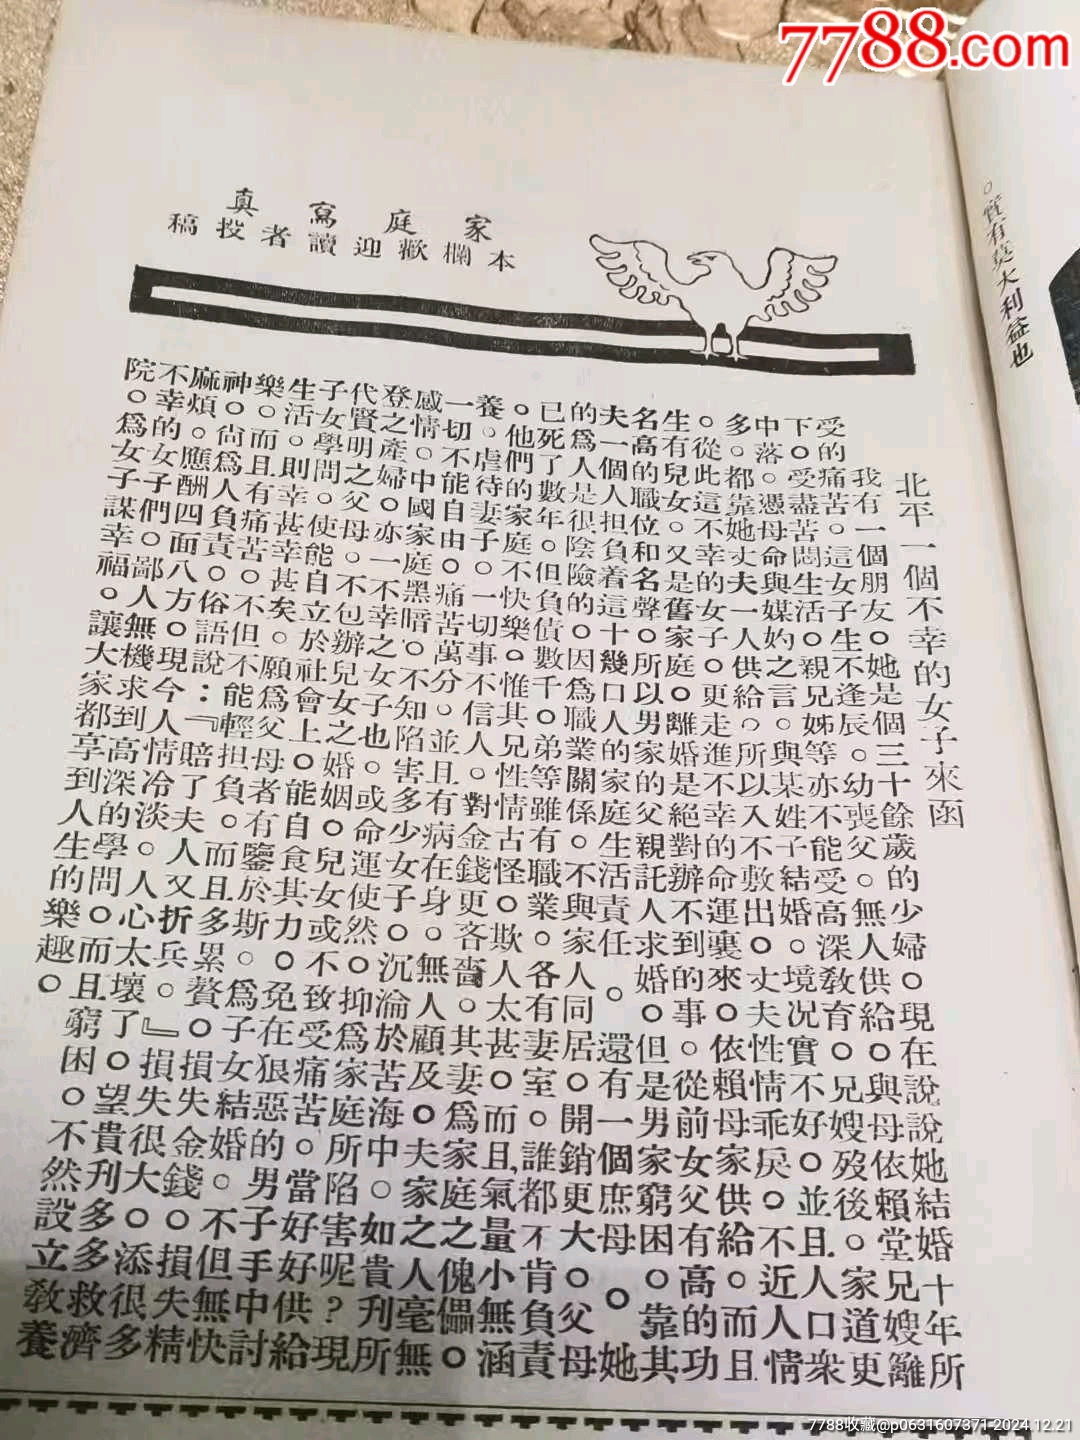 家庭寫真
本欄歡迎讀者投稿
北平一個不幸的女子來函
我有一個朋友。她是個三十餘歲的少婦。現在說說她結婚十年所
受的痛苦。這女子生不逢辰。幼喪父。無人供給。與母依賴堂兄嫂籬
下。受盡苦悶生活。親兄姊等亦不能受高深教育。兄嫂歿後。家道更
中落。憑母命與媒妁之言。與某姓子結婚。境况實不好。並且人口衆
多。都靠她丈夫一人供給。所以入不敷出。丈夫性情乖戾。不近人情
。從此這不幸的女子。更走進不幸的命運裏來。依賴母家供給。而且
生有兒女。又是舊家庭。離婚是絕對辦不到的事。從前女父有高的功
名高的職位和名聲。所以男家的父親託人求婚。但是男家窮困。靠其
夫一個人担負着這十幾口人的家庭生活責任。還有一個庶母。她
的為人是很陰險的。因為職業關係。不與家人同居。開銷更大。父母
已死了數年。但負債數千。弟等雖有職業。各有妻室。誰都不肯負責
。他們的家庭不快樂。惟其兄性情古怪。欺人太甚。而且氣量小無涵
養。虐待妻子。一切事不信人。對金錢更吝嗇。其妻為家庭之傀儡。
一切不能自由。痛苦萬分。並且有病在身。無人顧及。夫家之人毫無
感情。中國家庭黑暗。不知陷害多少女子。沉淪於苦海中。如貴刊所
登之產婦。亦一不幸之女子也。或命運使然。抑為家庭所陷害呢？現
代賢明之父母。不包辦兒女之婚姻。兒女或不致受痛苦。當好好供給
子女學問。使能自立於社會上。能自食其力。免在狠惡的男子手中討
生活。則幸甚幸甚矣。願為父母者有鑒於斯。為子女結婚。不但無快
樂。而且有痛苦。不但不能輕担負。而且多累贅。損失金錢。損失精
神。尚為人負責。俗語說：『賠了夫人又折兵。』損失很大。添很多
麻煩。應酬四面八方。現今人情冷淡。人心太壞了。望貴刊多多救濟
不幸的女子們。鄙人無機求到高深的學問。而且窮困。不然設立教養
院。為女子謀幸福。讓大家都享到人生的樂趣。
。實有莫大利益也
7788.com
7788收藏@p0631607371 2024.12.21